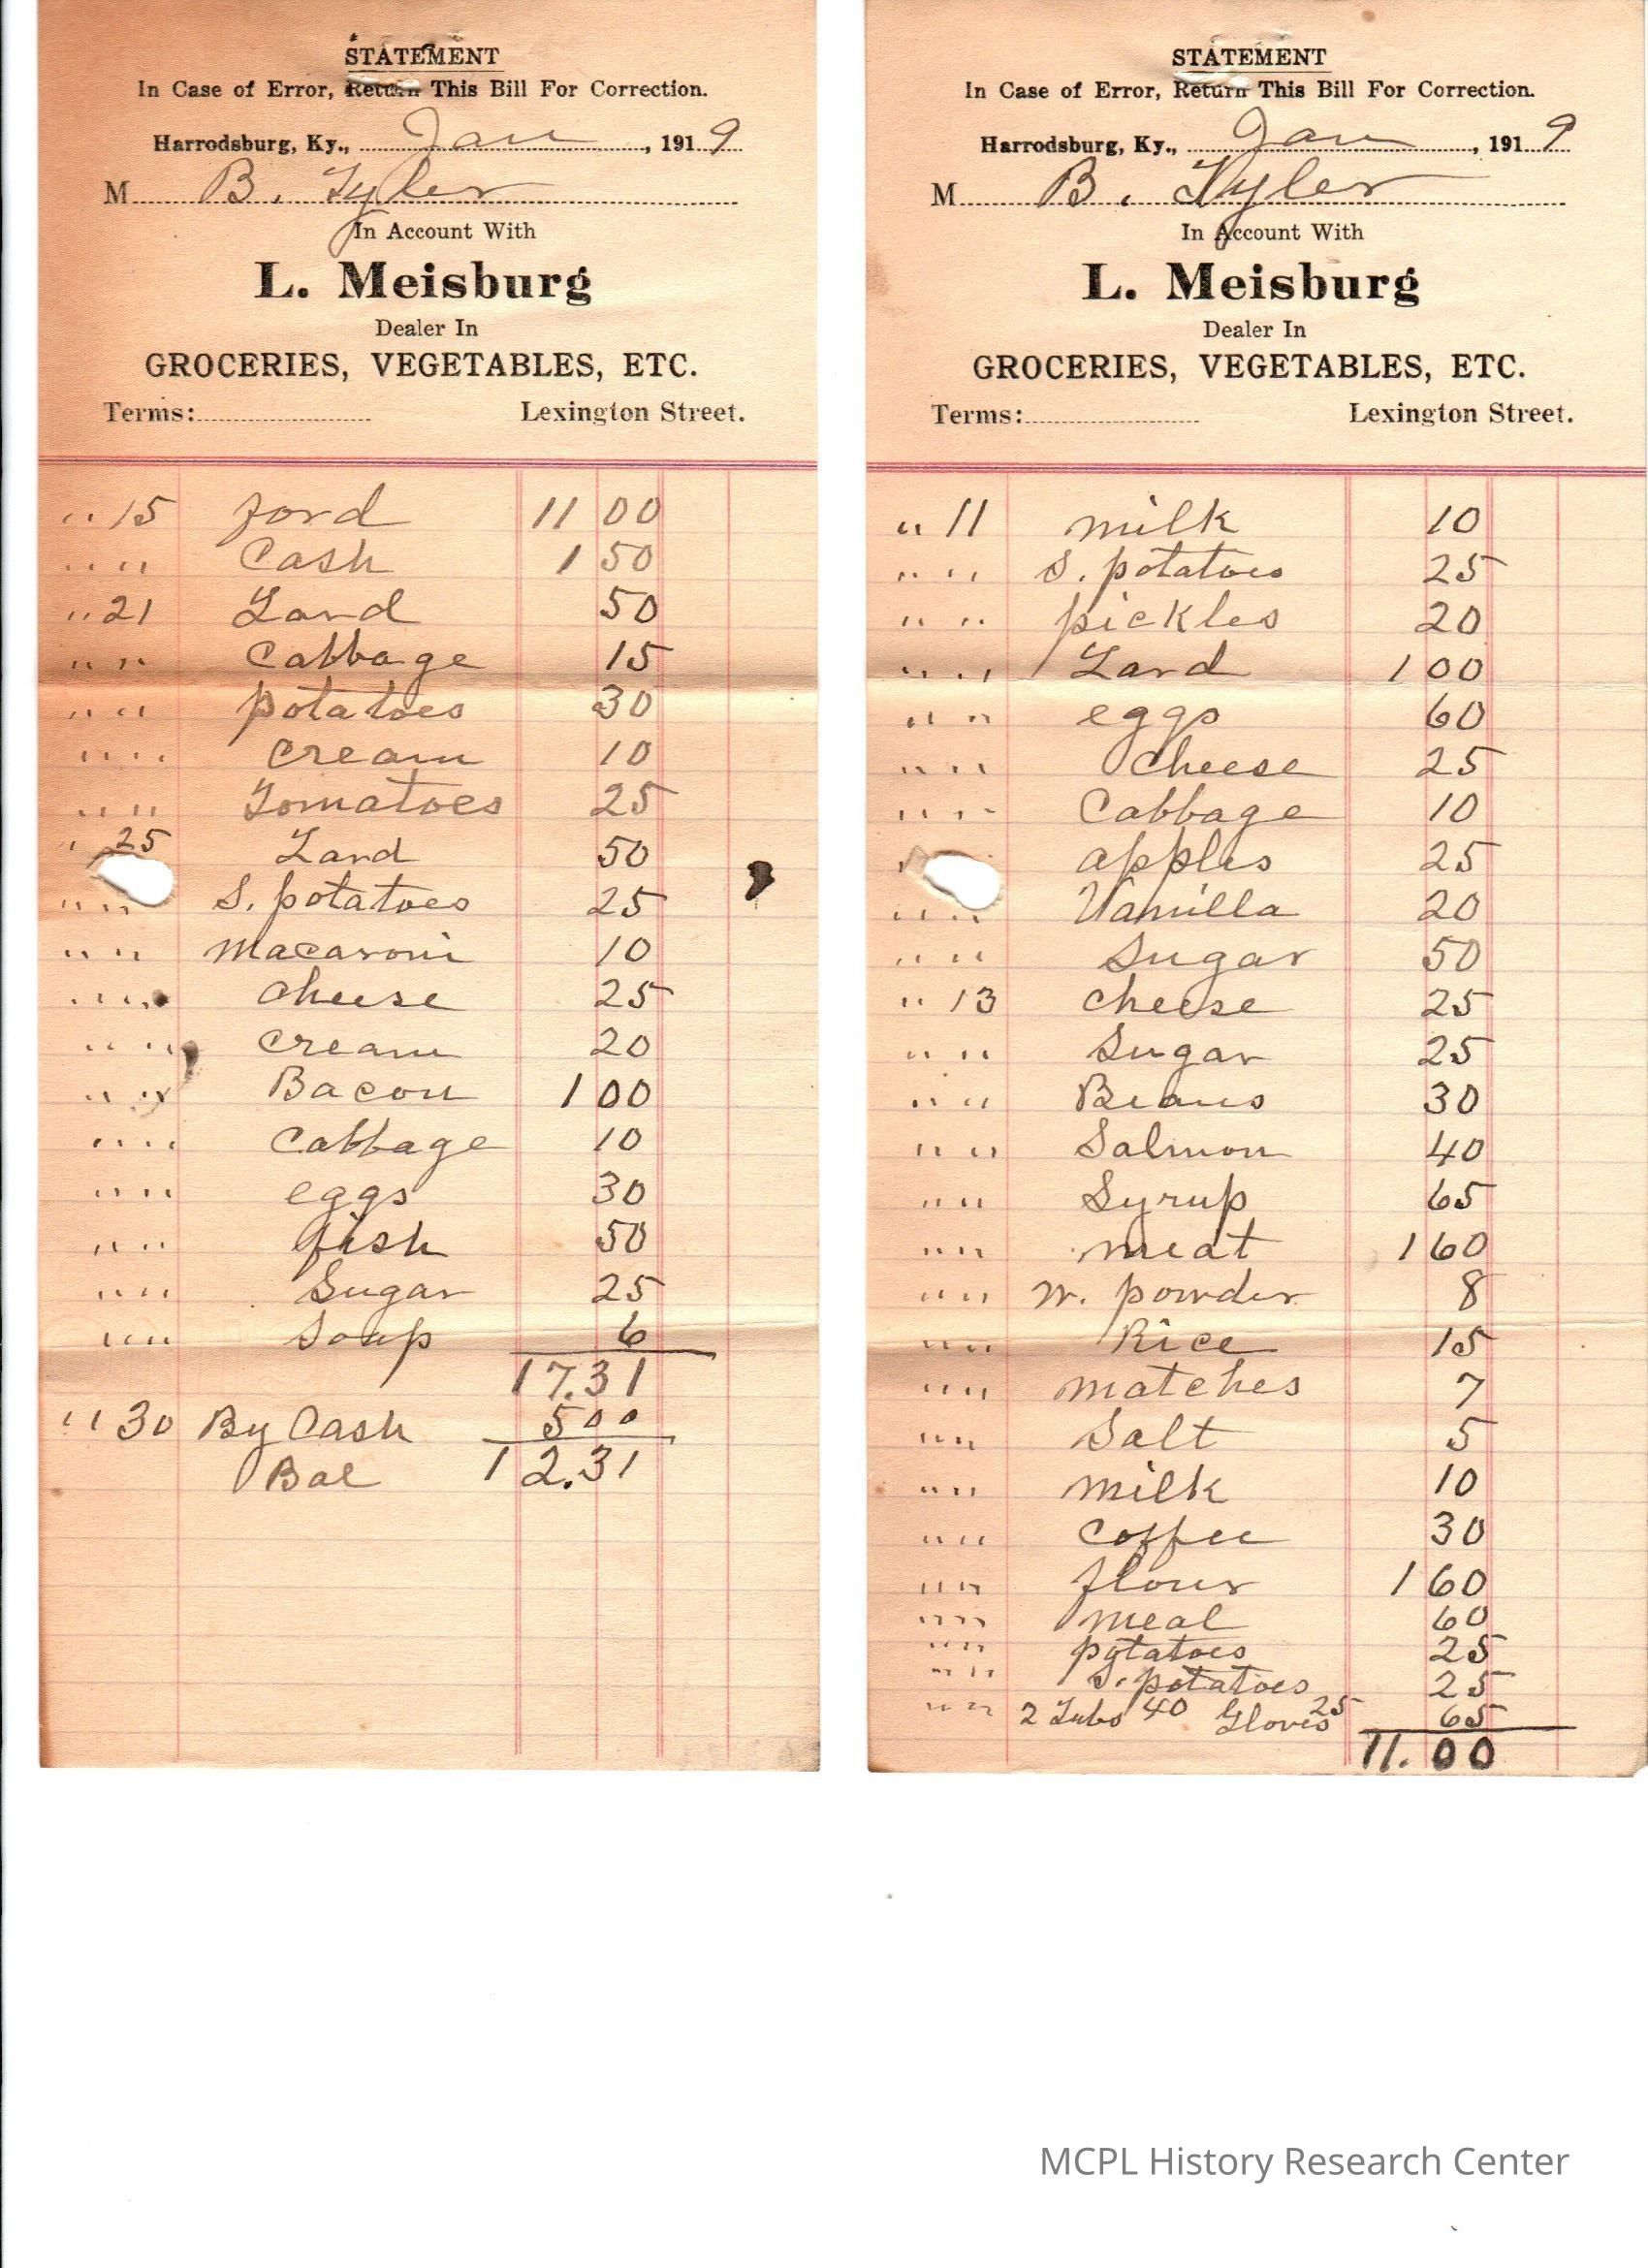 STATEMENT
In Case of Error, Return This Bill For Correction.
Harrodsburg, Ky., Jan, 1919
M B. Tyler
In Account With
L. Meisburg
Dealer In
GROCERIES, VEGETABLES, ETC.
Terms: Lexington Street.
" 15 Ford 11 00
" " Cash 1 50
" 21 Lard 50
" " Cabbage 15
" " potatoes 30
" " cream 10
" " Tomatoes 25
" 25 Lard 50
" " S. potatoes 25
" " Macaroni 10
" " cheese 25
" " cream 20
" " Bacon 1 00
" " Cabbage 10
" " eggs 30
" " fish 50
" " Sugar 25
" " Soap 6
17.31
" 30 By Cash 5 00
Bal 12.31
STATEMENT
In Case of Error, Return This Bill For Correction.
Harrodsburg, Ky., Jan, 1919
M B. Tyler
In Account With
L. Meisburg
Dealer In
GROCERIES, VEGETABLES, ETC.
Terms: Lexington Street.
" 11 milk 10
" " S. potatoes 25
" " pickles 20
" " Lard 1 00
" " eggs 60
" " Cheese 25
" " Cabbage 10
" apples 25
" " Vanilla 20
" " Sugar 50
" 13 cheese 25
" " Sugar 25
" " Beans 30
" " Salmon 40
" " Syrup 65
" " meat 1 60
" " W. powder 8
" " Rice 15
" " matches 7
" " Salt 5
" " milk 10
" " Coffee 30
" " flour 1 60
" " meal 60
" " potatoes 25
" " S. potatoes 25
" " 2 Tubs 40 Gloves 25 65
11.00
MCPL History Research Center